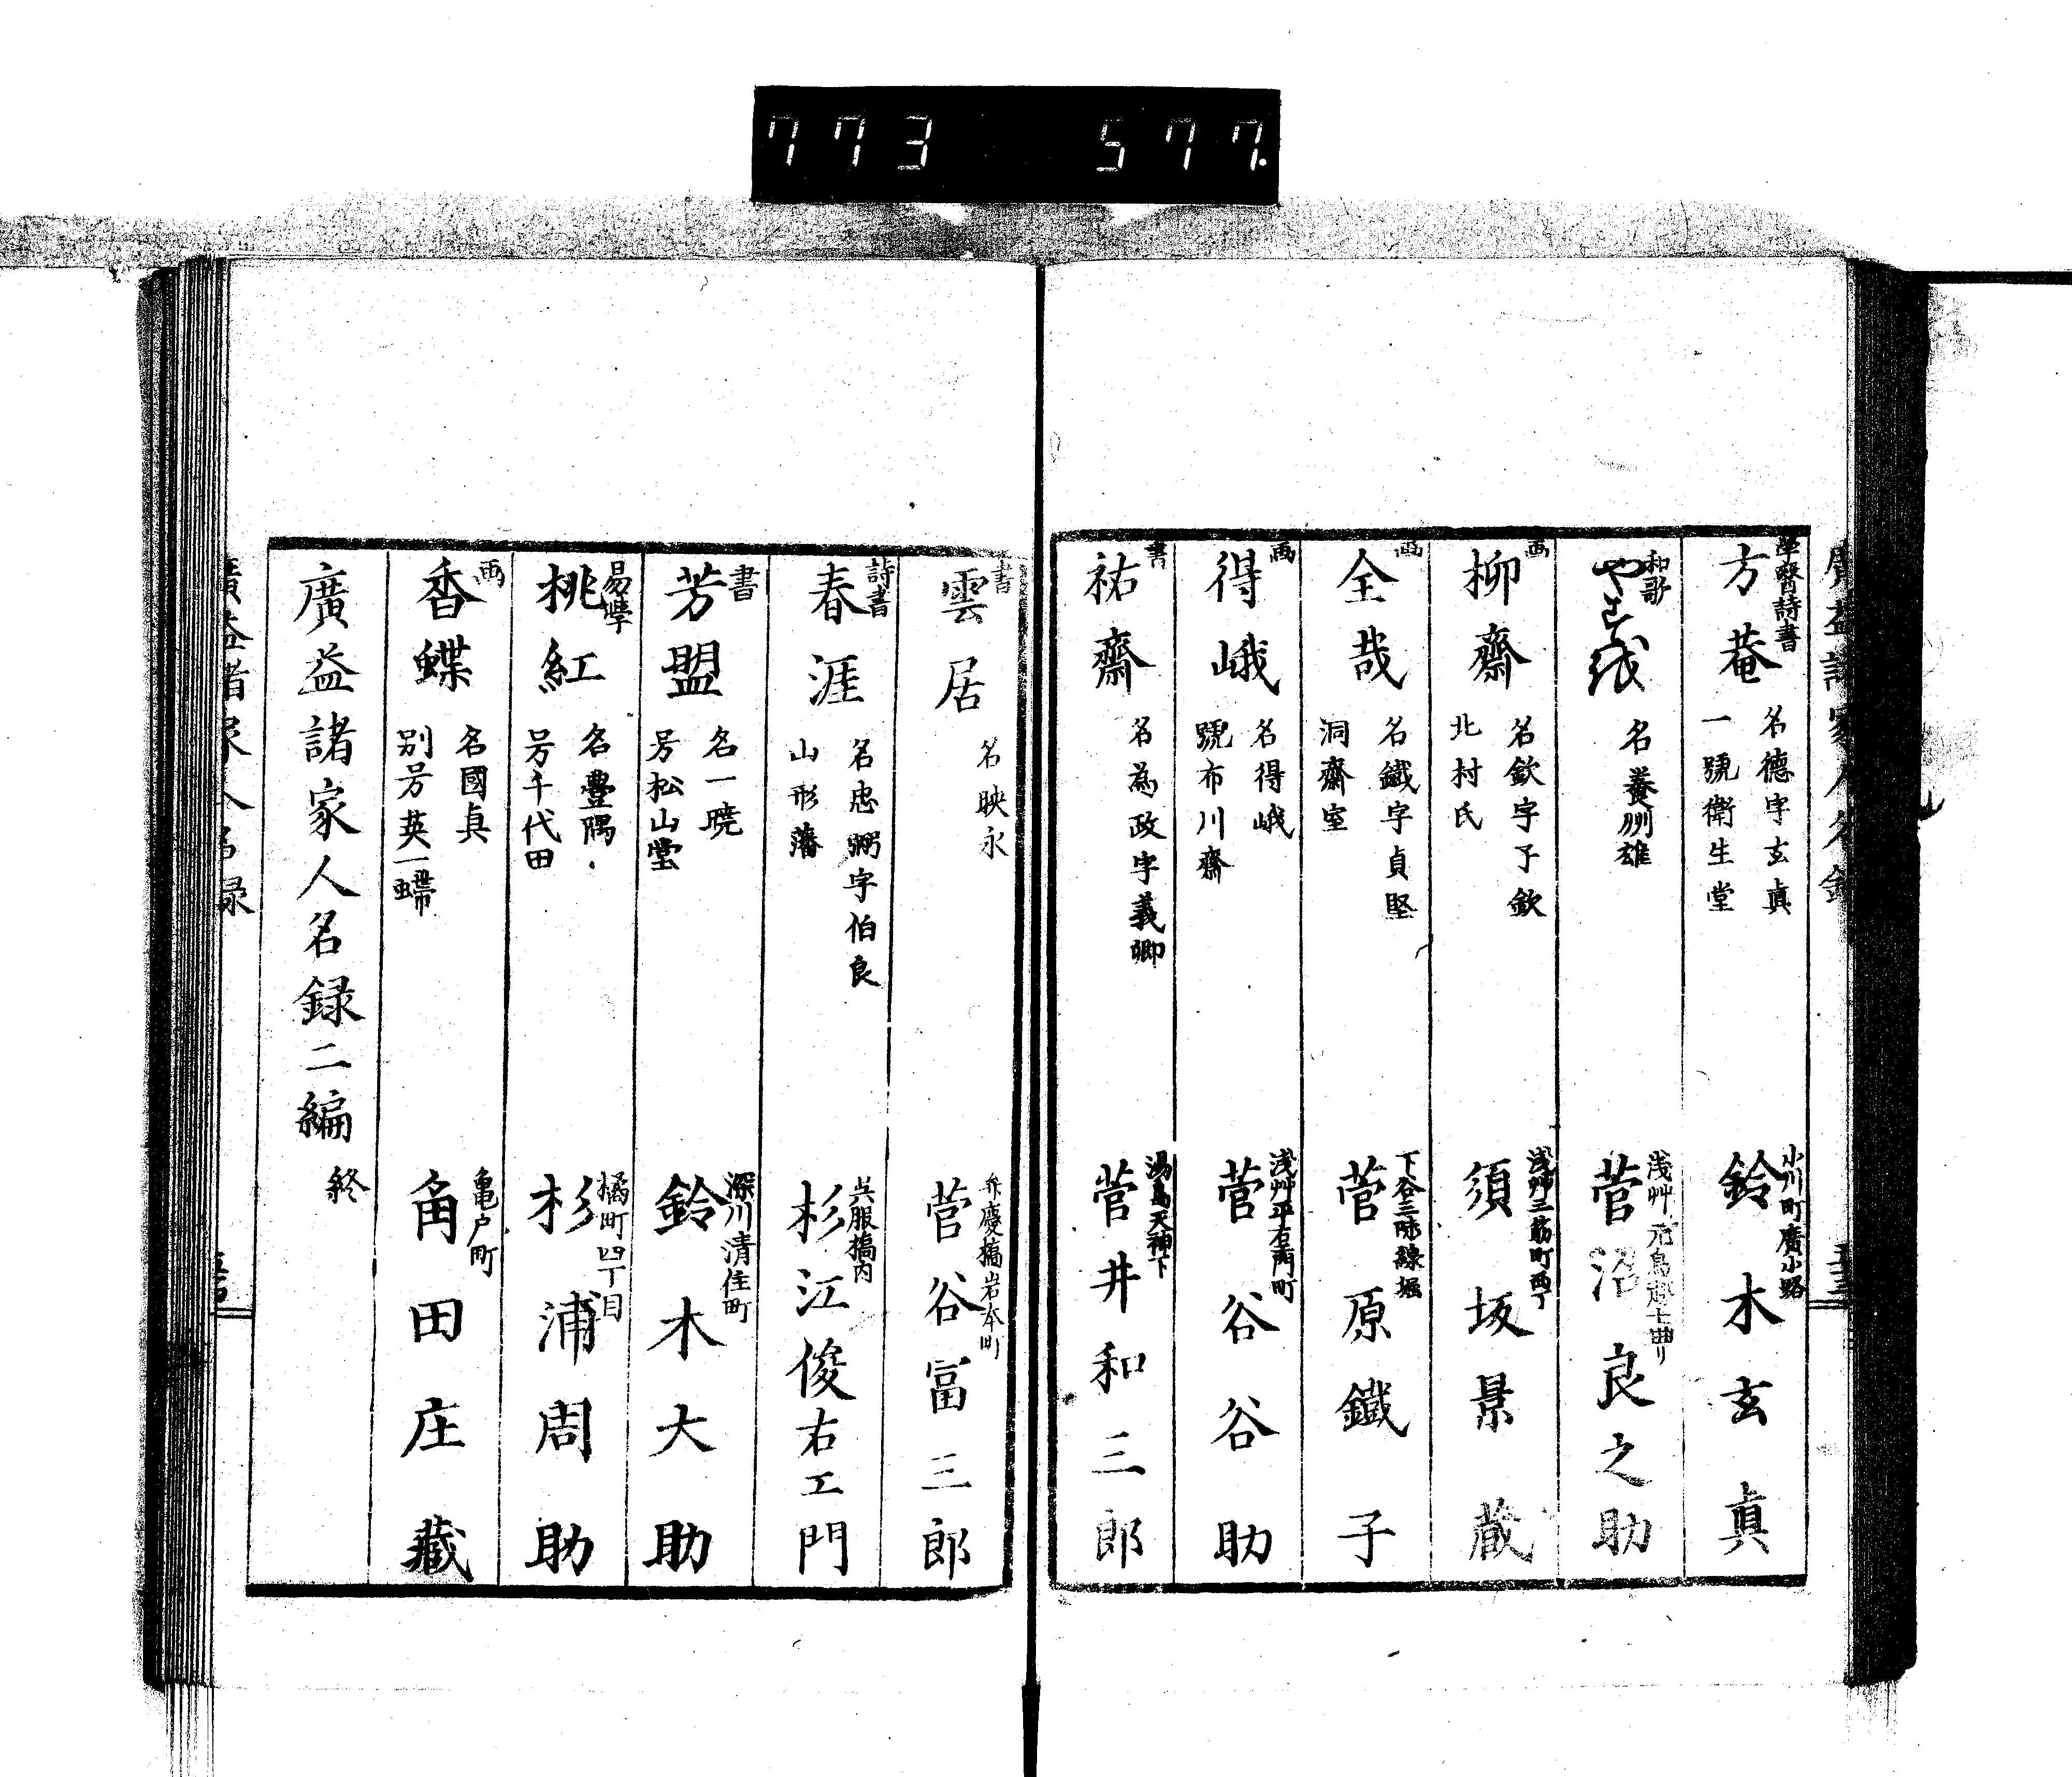 773 577.
詩書
方菴
名德字玄真
一號衛生堂
小川町廣小路
鈴木玄真
和歌
名養
浅艸元鳥越
菅沼良之助
画
柳齋
名欽字子欽
北村氏
浅艸三筋町西丁
須坂景蔵
画
全哉
名鐵字貞堅
洞齋室
下谷三味線堀
菅原鐵子
画
得峨
名得峨
號布川齋
浅艸平右衛門町
菅谷谷助
書
祐齋
名為政字義卿
湯島天神下
菅井和三郎
書
雲居
名映永
弁慶橋岩本町
菅谷富三郎
詩書
春涯
名忠弼字伯良
山形藩
呉服橋内
杉江俊右エ門
書
芳盟
名一暁
号松山堂
深川清住町
鈴木大助
易學
桃紅
名豊隅
号千代田
橘町四丁目
杉浦周助
画
香蝶
名國貞
別号英一螮
亀戸町
角田庄藏
廣益諸家人名録二編 終
廣益諸家人名録